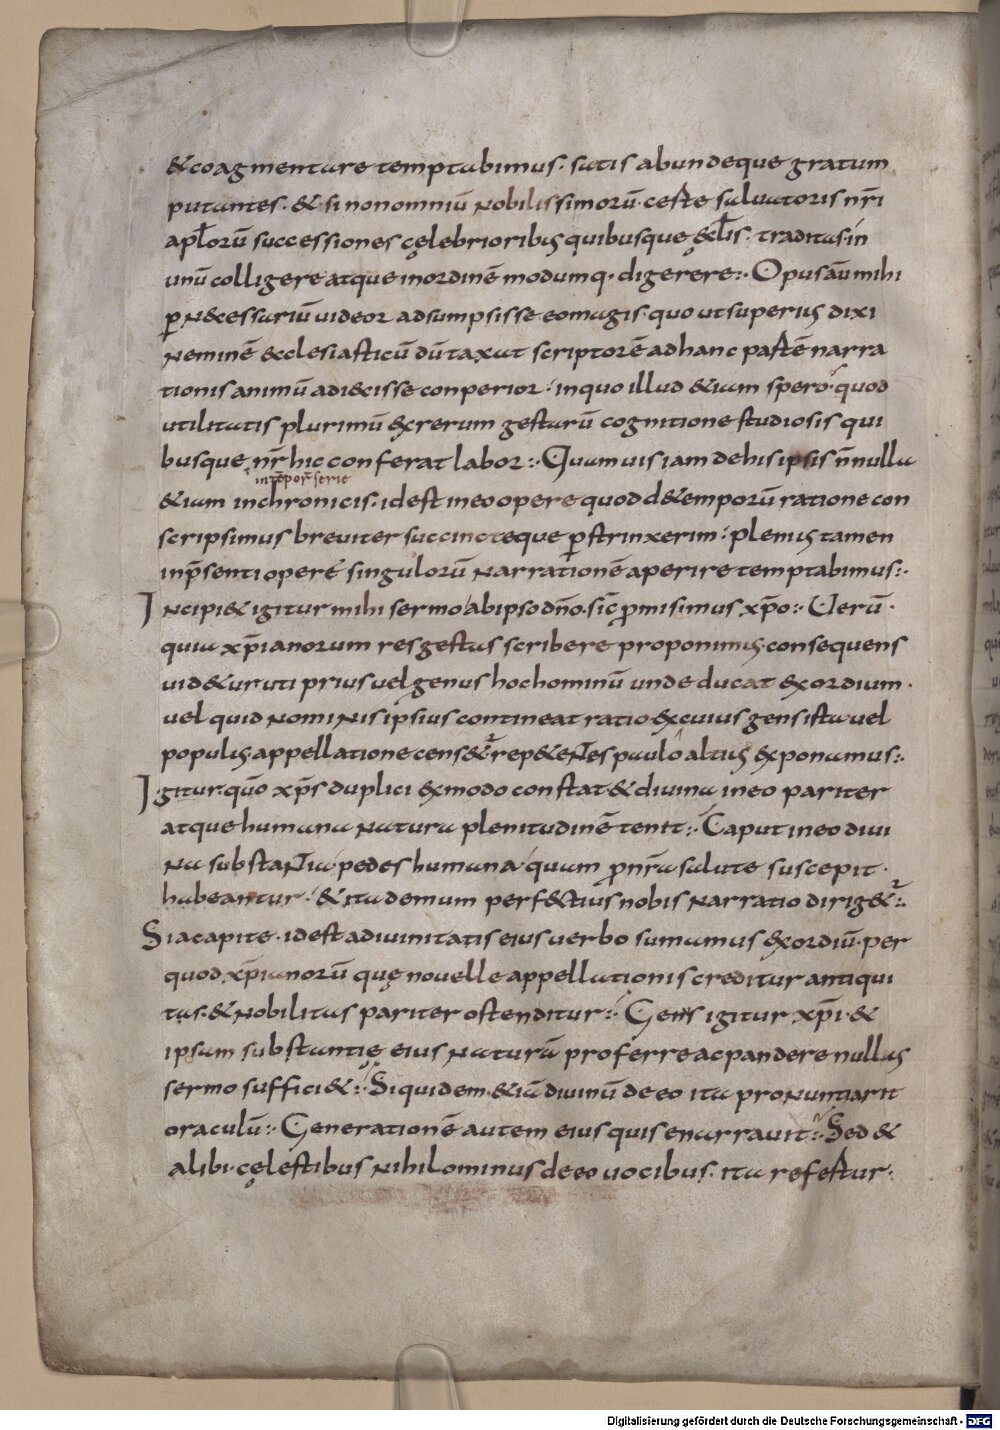 & coagmentare temptabimus. satis abundeque gratum
putantes. & si non omniū nobilissimorū. certe saluatoris nr̄i
apl̄orū successiones cęlebrioribus quibusque ęccl̄is. traditas in
unū colligere atque in ordinē modumq. digerere:. Opus aūt mihi
ꝑ necessariū uideor adsumpsisse eo magis. quo ut superius dixi
neminē ecclesiasticū dūtaxat scriptorē ad hanc partē narra
tionis animū adiecisse conperior. in quo illud &iam spero. quod
utilitatis plurimū ex rerum gestarū cognitione studiosis qui
busque nr̄ hic conferat labor:. Quam uis iam de his ipsis n̄nulla
in tēporū serie
&iam in chronicis. id est in eo opere quod de temporū ratione con
scripsimus breuiter succincteque ꝑstrinxerim. plenius tamen
in p̄senti opere singulorū narrationē aperire temptabimus:.
Incipi& igitur mihi sermo ab ipso dn̄o. sic̄ ꝓmisimus xp̄o:. Uerū.
quia xp̄ianorum res gestas scribere proponimus. consequens
uid&ur uti prius uel genus hoc hominū unde ducat exordium.
uel quid nominis ipsius contineat ratio. ex cuius gens ista uel
populus appellatione cens&ur rep&entes paulo altius exponamus:.
Igitur quō xp̄s duplici ex modo constat & diuina in eo pariter
atque humana natura plenitudinē tenet:. Caput in eo diui
na substantia. pedes humana quam ꝓ nr̄a salute suscepit.
habeantur. & ita demum perfectius nobis narratio dirig&ur:.
Si a capite. id est a diuinitatis eius uerbo sumamus exordiū. per
quod xp̄ianorū quę nouelle appellationis creditur antiqui
tas. & nobilitas pariter ostenditur:. Gens igitur xp̄i. &
ipsam substantię eius naturā proferre ac pandere nullus
sermo suffici&:. Siquidem. &iā diuinū de eo ita pronuntiarit
oraculū:. Generationē autem eius quis enarrauit:. Sed &
alibi. cęlestibus nihilominus de eo uocibus. ita refertur.
Digitalisierung gefördert durch die Deutsche Forschungsgemeinschaft - DFG